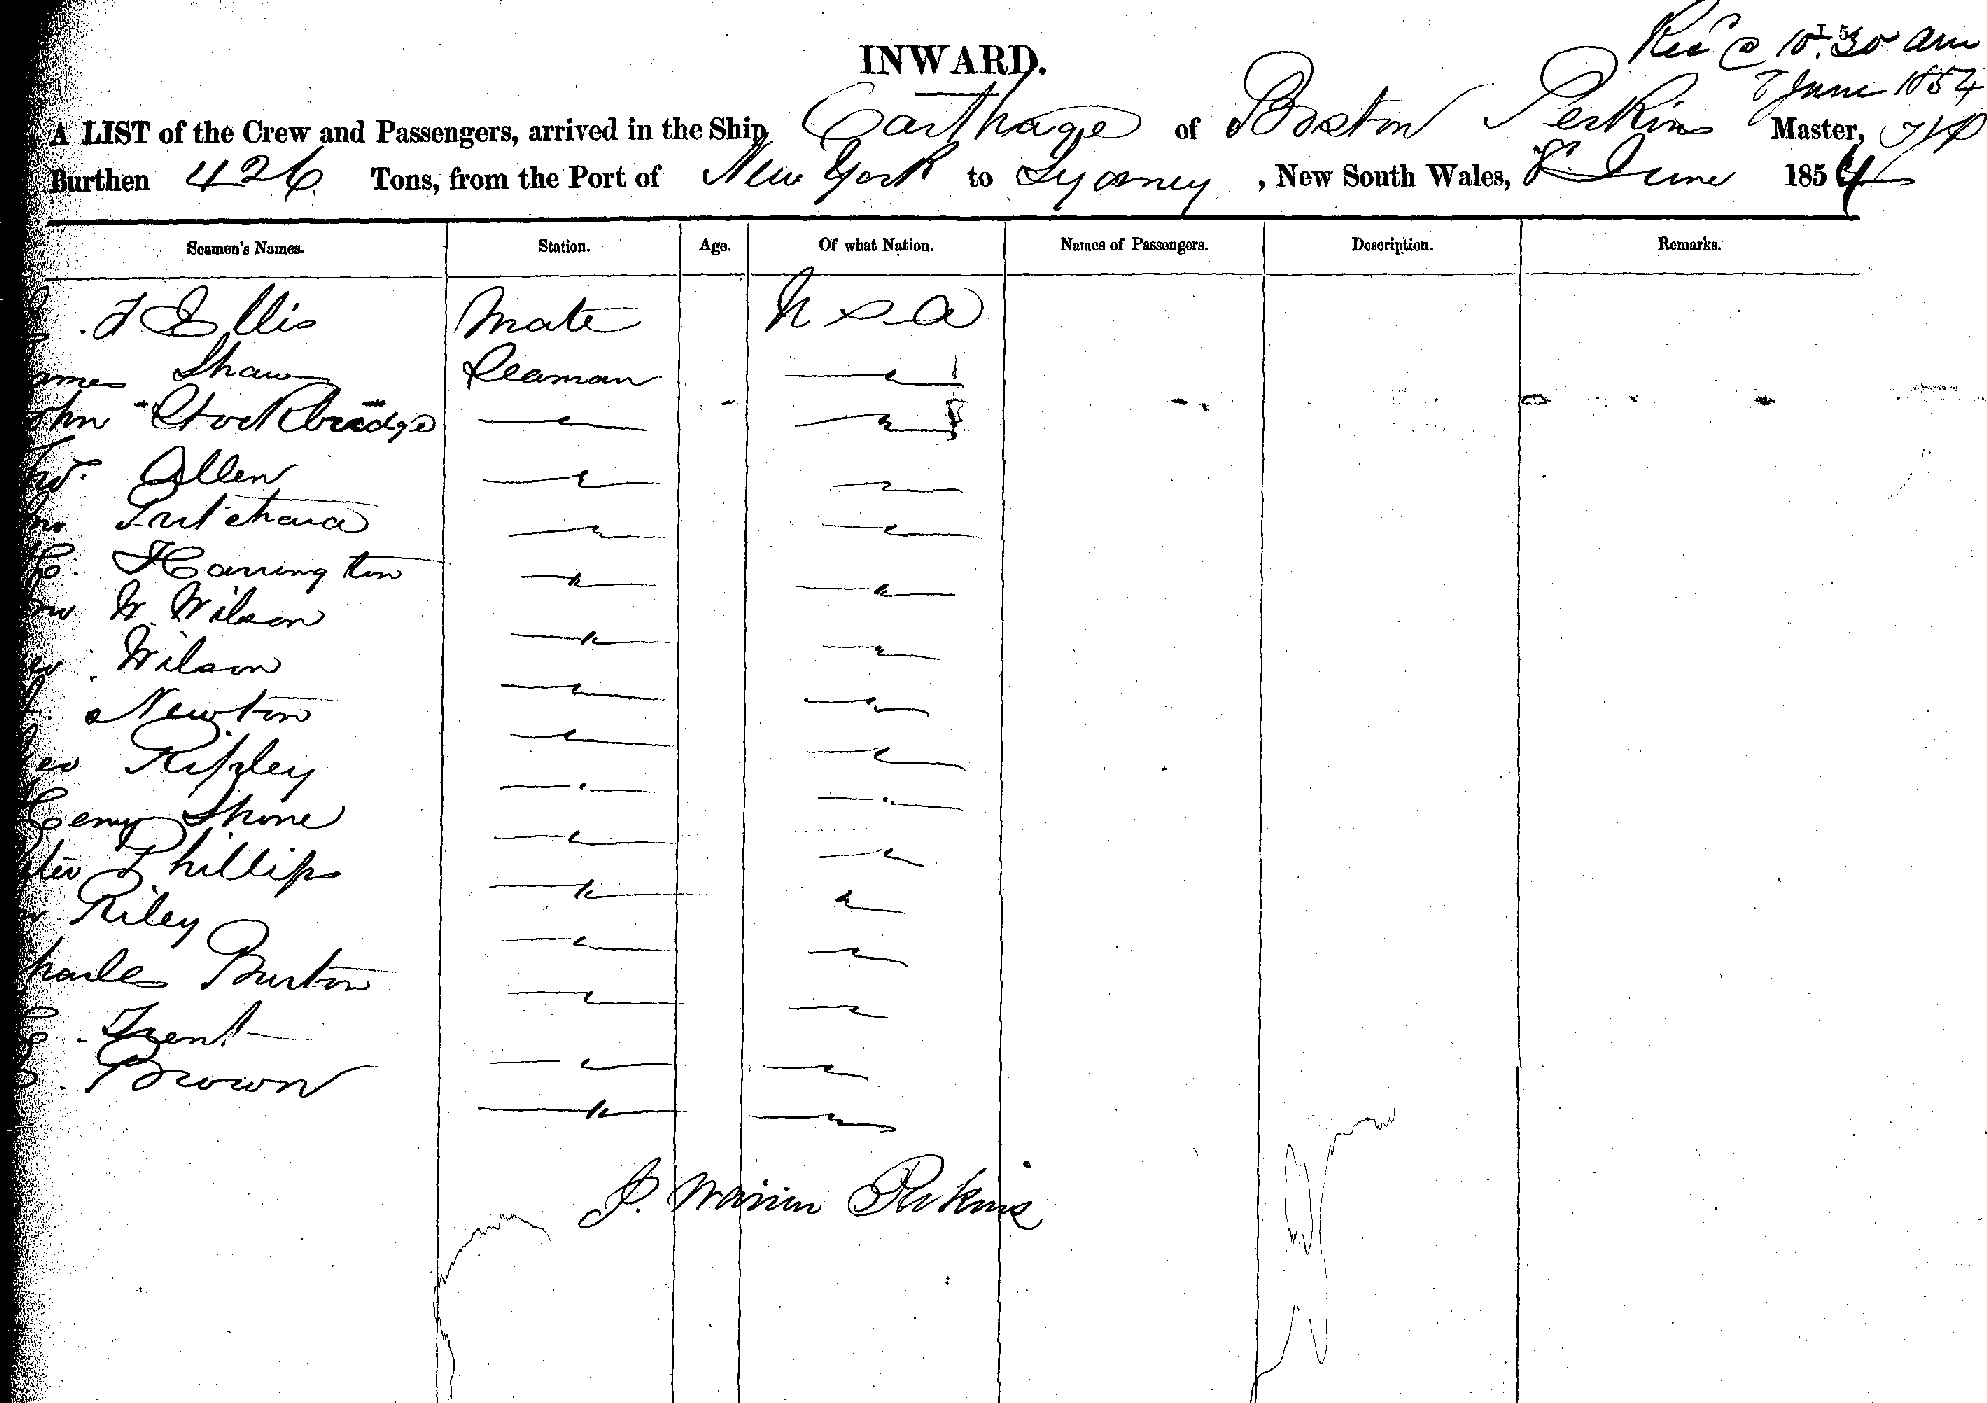 Rec'd @ 10.30 am
INWARD.
8 June 1854
A LIST of the Crew and Passengers, arrived in the Ship Carthage of Boston Perkins Master,
Burthen 426 Tons, from the Port of New York to Sydney, New South Wales, 8th June 1854
Seamen's Names. Station. Age. Of what Nation. Names of Passengers. Description. Remarks.
F Ellis Mate U S A
ames Shaw Seaman — " — — " —
ohn Stockbridge — " — — " —
Allen — " — — " —
— " — — " —
Harrington — " — — " —
W. Wilson — " — — " —
Wilson — " — — " —
Newton — " — — " —
eo Ripley — " — — " —
enry Shone — " — — " —
eter Phillips — " — — " —
Riley — " — — " —
harles Burton — " — — " —
Trent — " — — " —
Brown — " — — " —
J. Warren Perkins